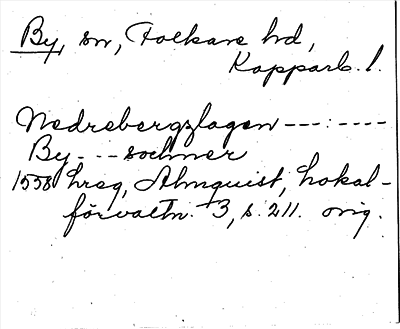 By, sn, Folkare hd,
Kopparb. l.
Nedrebergzlagen ---:----
By - - sochner
1558 hrsg, Almquist, Lokal-
förvaltn. 3, s. 211. orig.